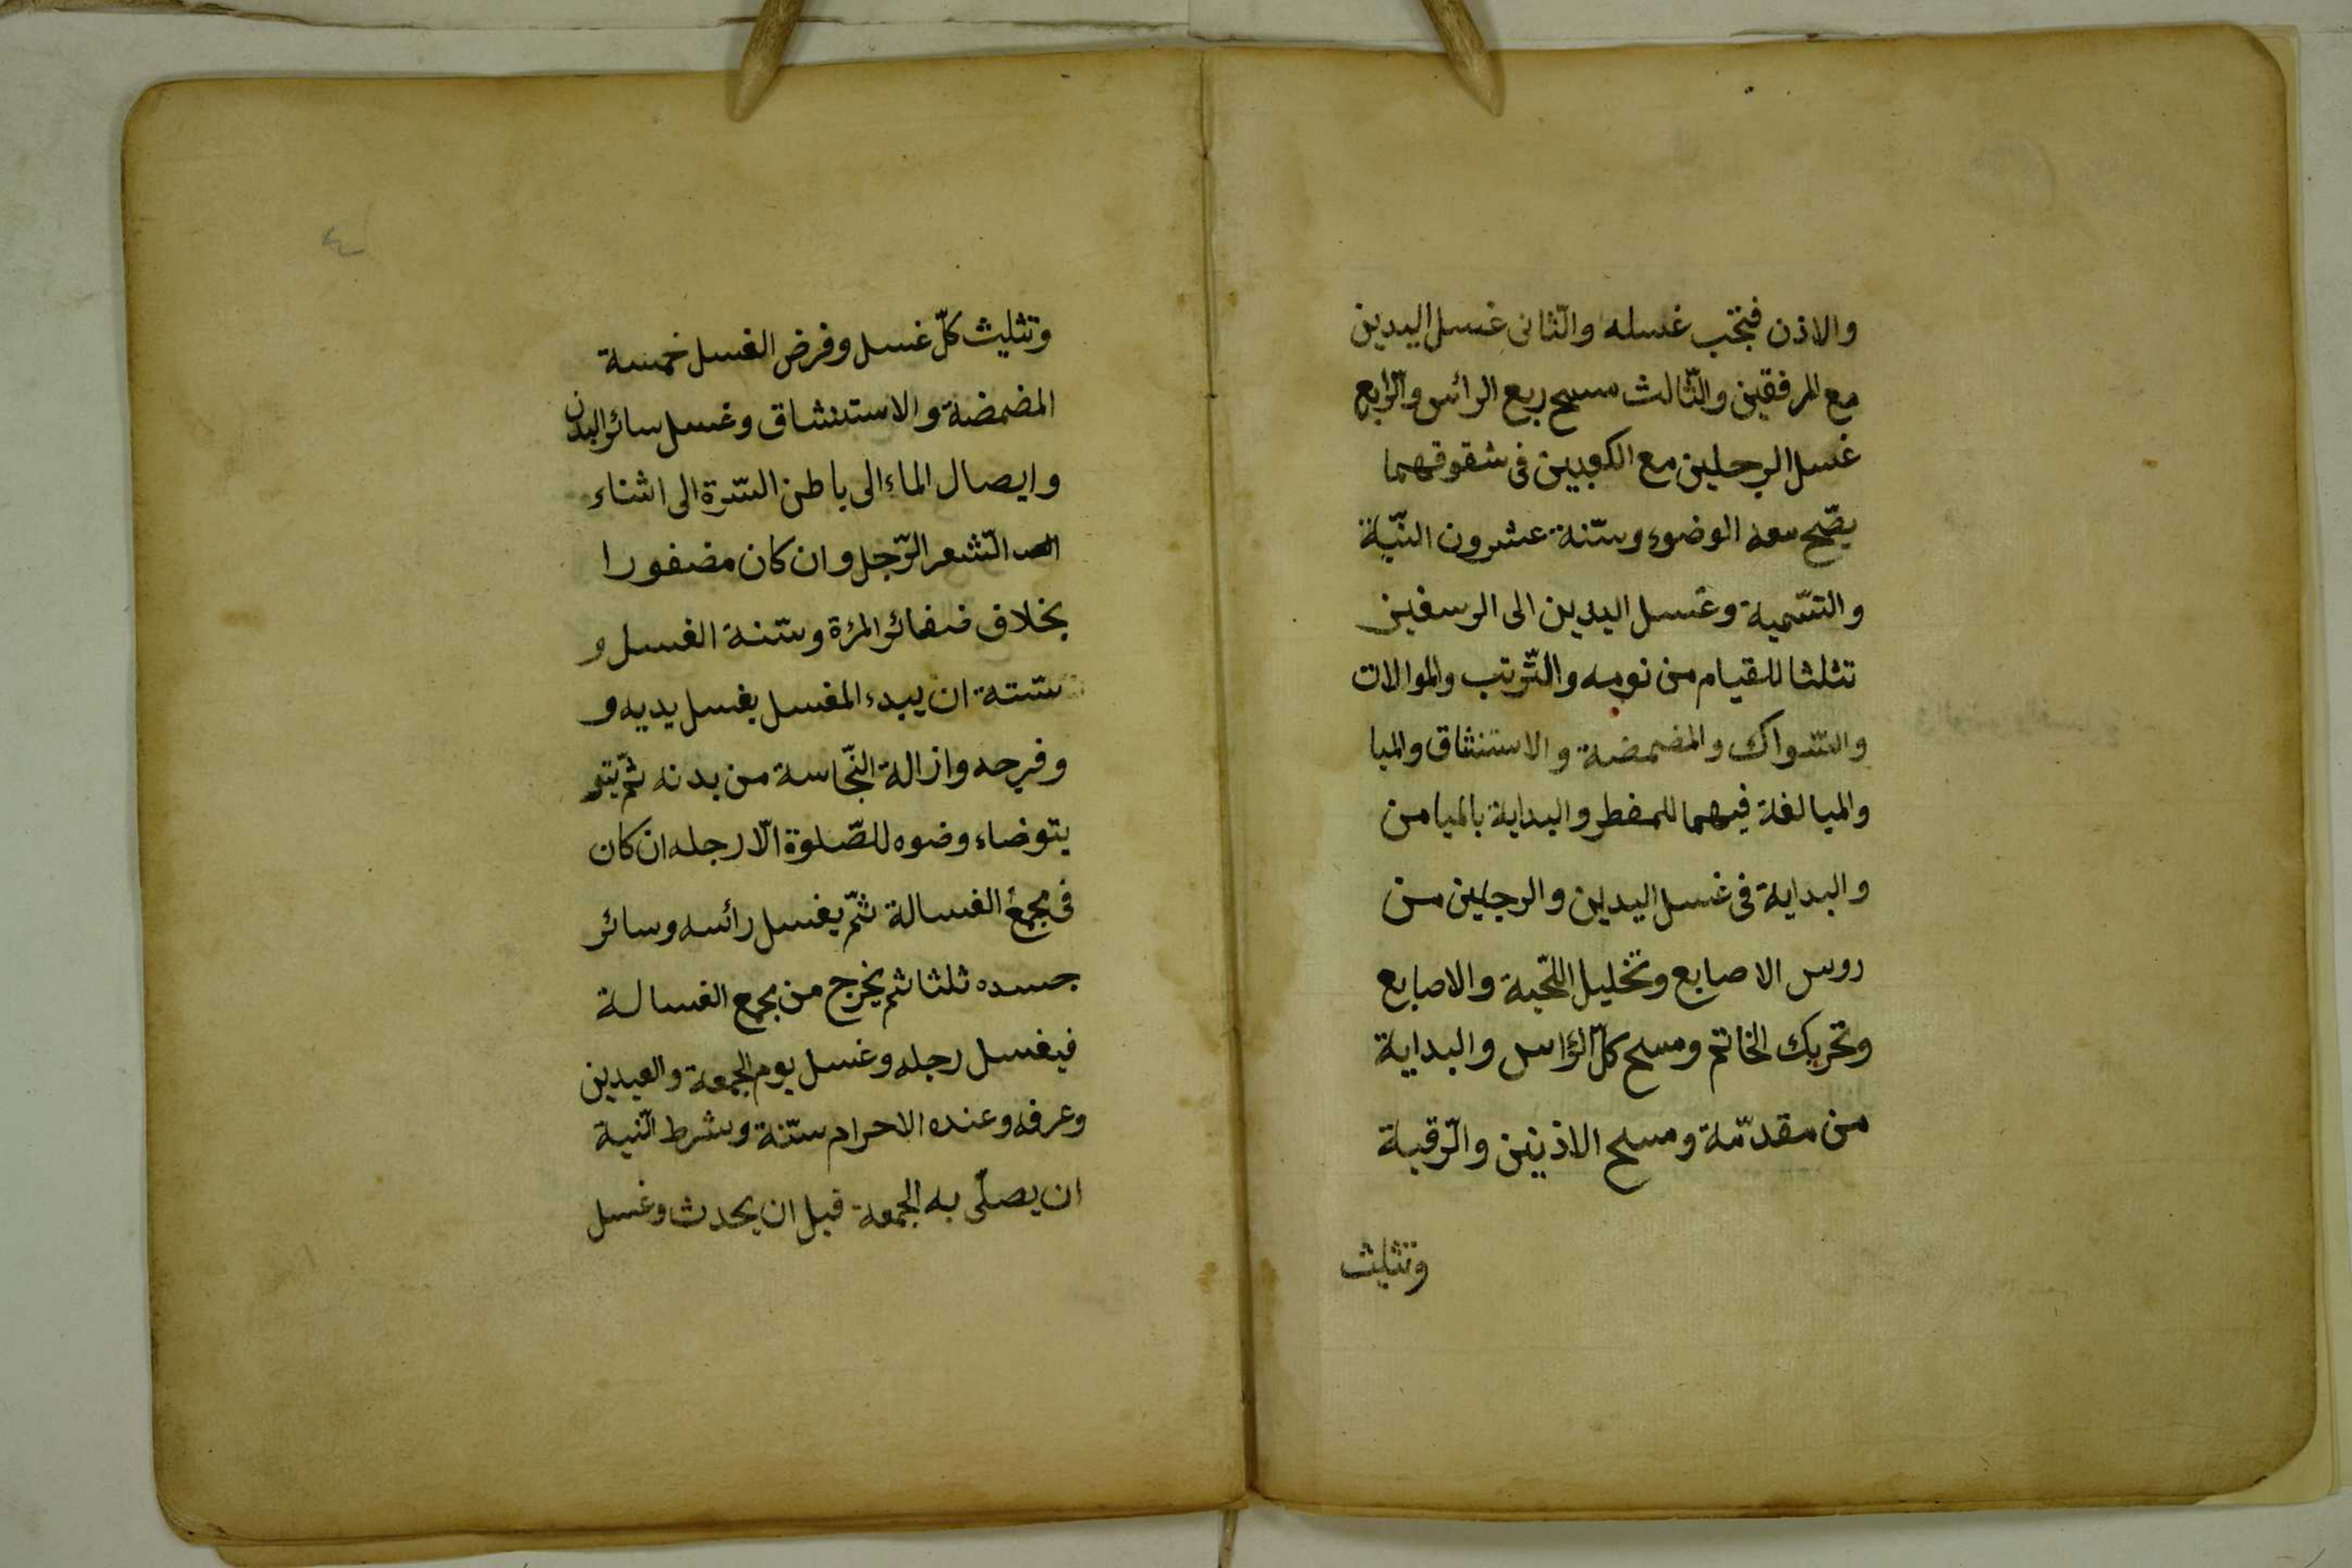 والاذن فيجب غسله والثّانى غسل اليدين
مع المرفقين والثّالث مسح ربع الرائس والرّابع
غسل الرجلين مع الكعبين فى شقوقهما
يصّح معه الوضوء وسنّنة عشرون النيّة
والتسّمية وغسل اليدين الى الرسغين
تثلثا للقيام من نومه والتّرتب والموالات
والسّواك والمضمضة والاستنشاق والمبا
والمبالغة فيهما للمفطر والبداية بالميامن
والبداية فى غسل اليدين والرجلين من
روس الاصابع وتخليل اللّحية والاصابع
وتحريك الخاتم ومسح كلّ الرّاس والبداية
من مقدّمة ومسح الاذنين والرّقبة
وتثليث
٤
وتثليث كلّ غسل وفرض الغسل خمسة
المضمضة والاستنشاق وغسل سائر البدن
وايصال الماء الى باطن السّرة الى اثناء
الشّعر الرّجل وان كان مضفورا
بخلاف ضفائر المرٔة وسنّة الغسل و
سنّته ان يبدء المغسل بغسل يديه و
وفرجه وازالة النّجاسة من بدنه ثمّ يتو
يتوضاء وضوه للصّلوة الّا رجله ان كان
فى مجمع الغسالة ثمّ يغسل رائسه وسائر
جسده ثلثا ثم يخرج من مجمع الغسالة
فيغسل رجله وغسل يوم الجمعة والعيدين
وعرفه وعنده الاحرام سنّة وشرط النّية
ان يصلّى به الجمعة قبل ان يحدث وغسل